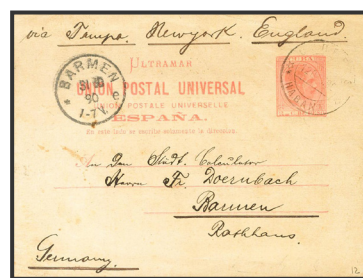 via Tampa. Newyork. England.
ULTRAMAR
UNION POSTAL UNIVERSAL
UNION POSTALE UNIVERSELLE
ESPAÑA.
En este lado se escribe solamente la dirección.
BARMEN
90
1-7V.
HABANA
An den Städt. Calculator
Herrn Fr. Doernbach
Barmen
Rathhaus.
Germany.
12